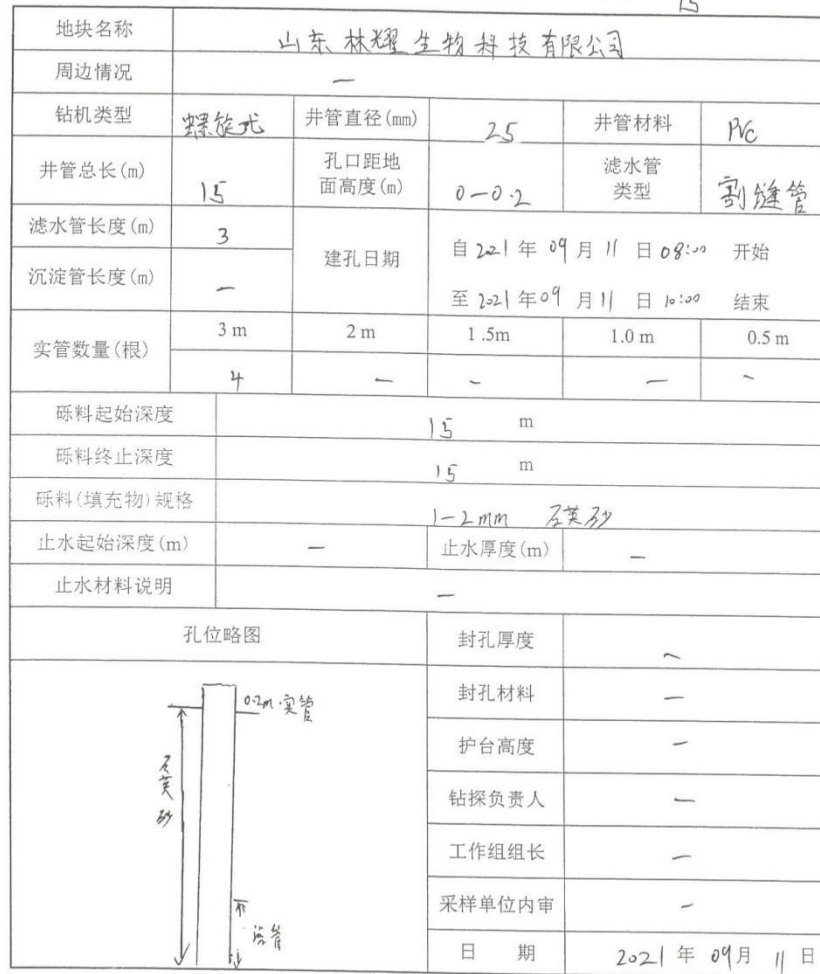 15
地块名称 山东林耀生物科技有限公司
周边情况 —
钻机类型 螺旋式 井管直径(mm) 25 井管材料 PVC
井管总长(m) 15 孔口距地面高度(m) 0-0.2 滤水管类型 割缝管
滤水管长度(m) 3 建孔日期 自2021年09月11日08:00 开始
沉淀管长度(m) — 至2021年09月11日10:00 结束
实管数量(根) 3 m 2 m 1.5m 1.0 m 0.5 m
4 — — — —
砾料起始深度 15 m
砾料终止深度 15 m
砾料(填充物)规格 1-2mm 石英砂
止水起始深度(m) — 止水厚度(m) —
止水材料说明 —
孔位略图 封孔厚度 —
0.2m 实管
石英砂
封孔材料 —
护台高度 —
钻探负责人 —
工作组组长 —
采样单位内审 —
日 期 2021年09月11日